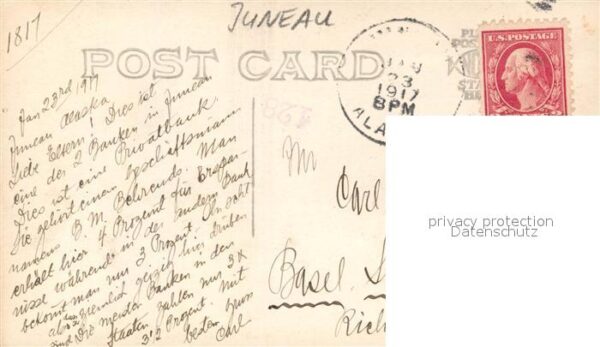 1817
JUNEAU
POST CARD
U.S. POSTAGE
JAN
23
1917
8 PM
ALA
428
Jan 23rd 1917
Juneau Alaska
Liebe Eltern! Dies ist
eine der 2 Banken in Juneau
Dies ist eine Privatbank
Sie gehört einem Geschäftsmann
namens B. M. Behrends. Man
erhält hier 4 Prozent für Erspar-
nisse während in der andern Bank
bekommt man nur 3 Prozent.
also ziemlich
sind Die meisten Banken in den
Staaten zahlen nur 3 &
3 1/2 Prozent. Mit
besten
Carl
Mr
Carl
Basel. S
Rich
privacy protection
Datenschutz